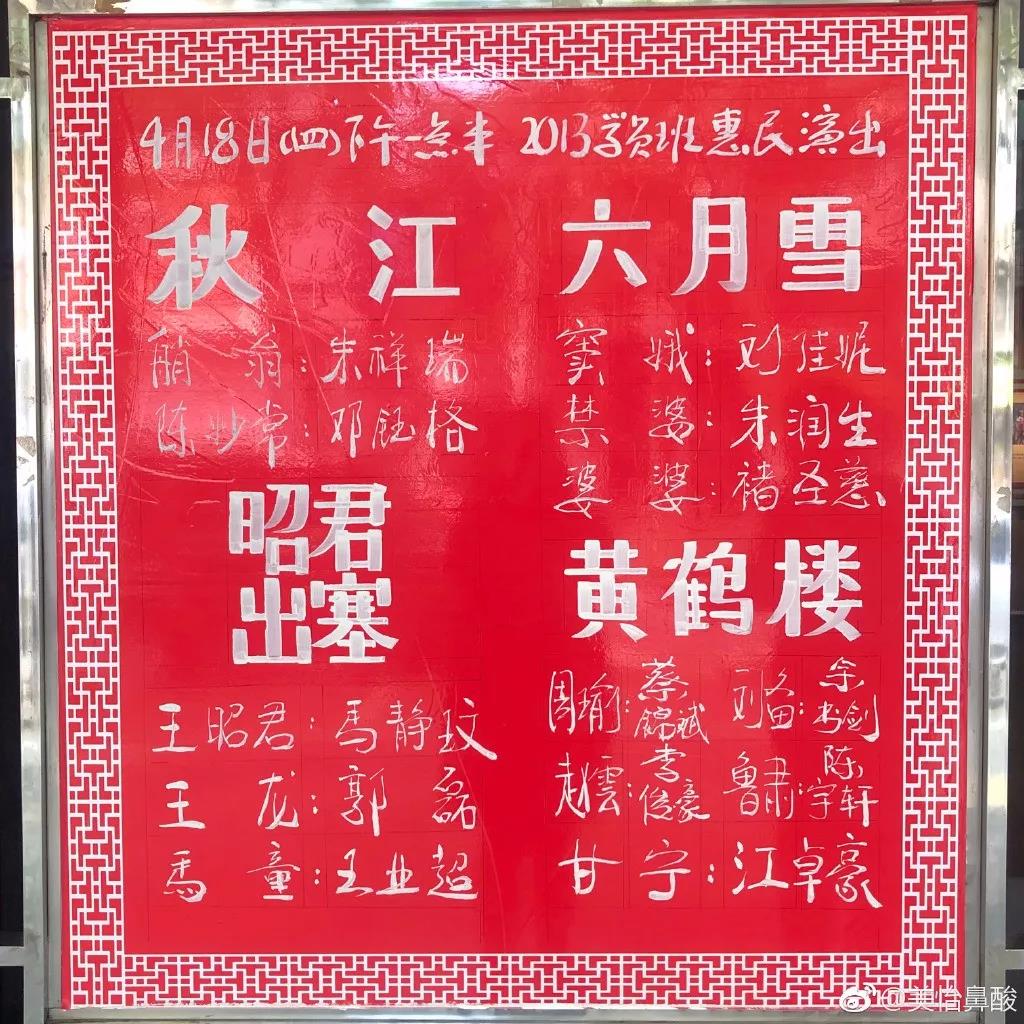 4月18日(四)下午一点半 2013学员班惠民演出
秋江
艄翁:朱祥瑞
陈妙常:邓钰格
昭君
出塞
王昭君:馬静玟
王龙:郭磊
馬童:王业超
六月雪
窦娥:刘陸妮
禁婆:朱润生
婆婆:褚圣慈
黄鹤楼
周瑜:蔡錦斌 刘备:余书剑
赵雲:李俊豪 鲁肃:陈宇轩
甘宁:江卓豪
@美怡鼻酸